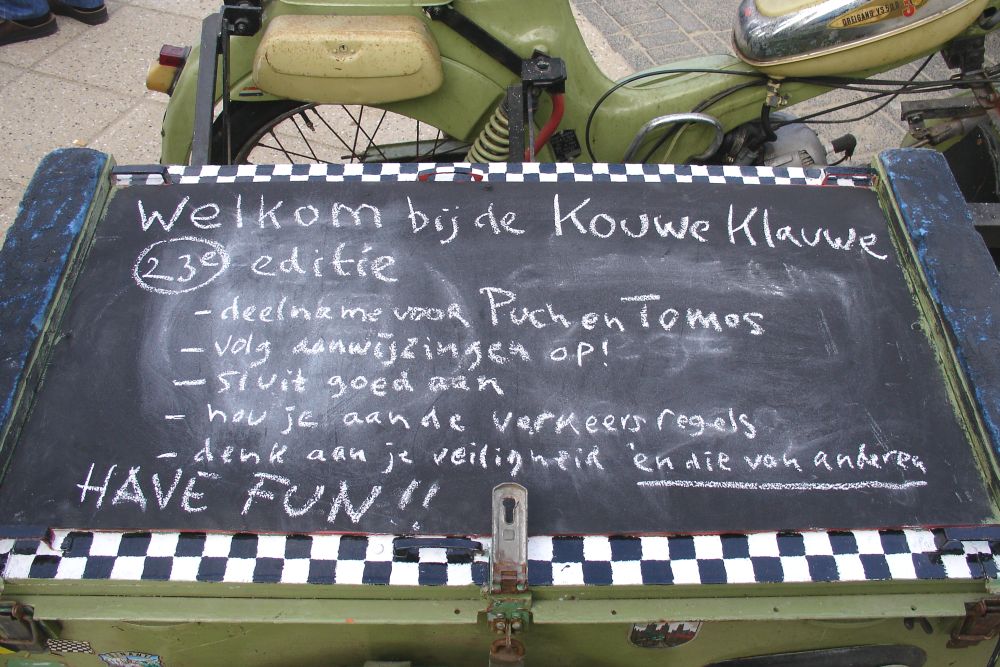 DREIGANG VS 50 D
Welkom bij de Kouwe Klauwe
23e editie
- deelname voor Puch en Tomos
- volg aanwijzingen op!
- sluit goed aan
- hou je aan de verkeersregels
- denk aan je veiligheid èn die van anderen
HAVE FUN!!